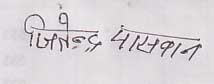 जितेन्द्र पासवान